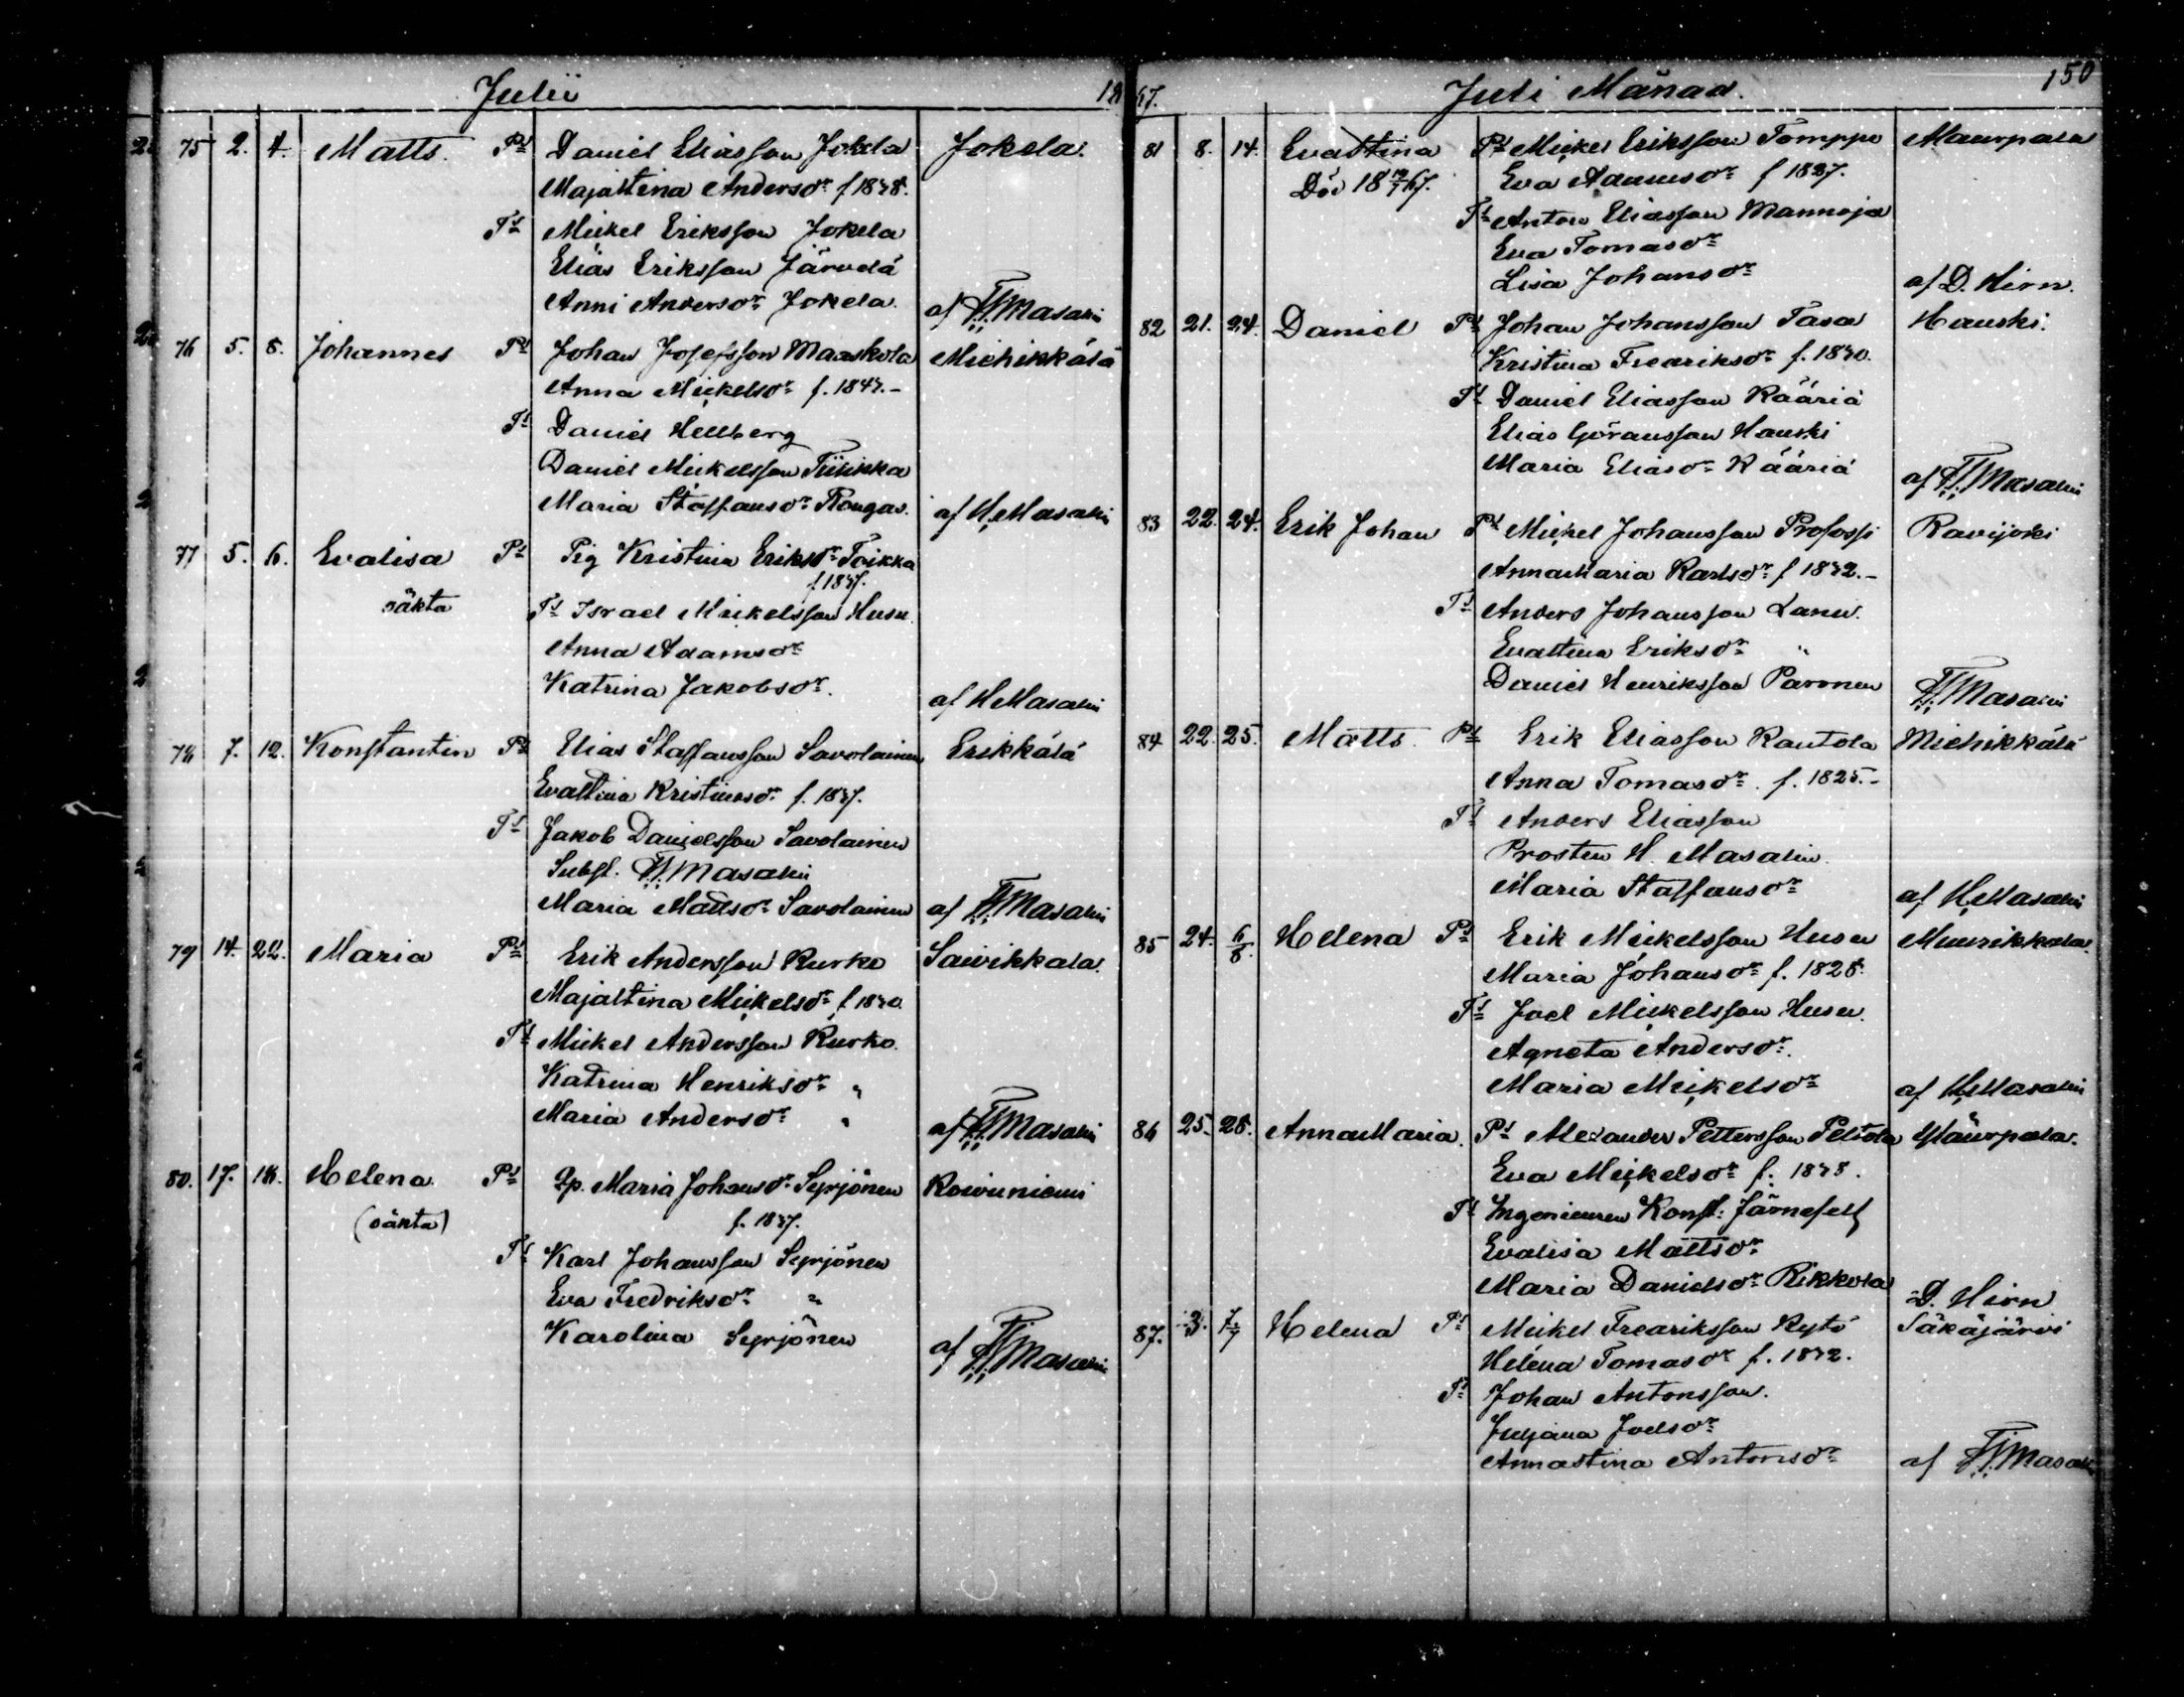 Julii 1867. Juli Månad. 150
75 2. 4. Matts. Ps Daniel Eliasson Jokela Jokela.
Majastina Andersdr f 1838.
Ts Mickel Eriksson Jokela
Elias Eriksson Järvelä
Anni Andersdr Jokela. af H. Masalin
76 5. 8. Johannes Ps Johan Josefsson Maaskola Miehikkälä
Anna Mickelsdr f. 1843.-
Ts Daniel Hellberg
Daniel Mickelsson Tiiikka
Maria Staffansdr Kougas. af H. Masalin
77 5. 6. Evalisa Ps Pig Kristina Eriksdr Toikka
f 1837.
oäkta Ts Israel Mickelsson Husu.
Anna Adamsdr
Katrina Jakobsdr. af H Masalin
78 7. 12. Konstantin Ps Elias Staffansson Savolainen Erikkälä
Evastina Kristiansdr f. 1837.
Ts Jakob Danielsson Savolainen
Subst. H. Masalin
Maria Mattsdr Savolainen af H. Masalin
79 14. 22. Maria Ps Erik Andersson Kurko Saivikkala.
Majastina Mickelsdr f 1830.
Ts Mickel Andersson Kurko.
Katrina Henriksdr "
Maria Andersdr " af H. Masalin
80. 17. 18. Helena. Ps Qp. Maria Johansdr Syrjönen Koivuniemi
(oäkta) f. 1837.
Ts Karl Johansson Syrjönen
Eva Fredriksdr "
Karolina Syrjönen af H. Masalin
81 8. 14. Evastina Ps Mickel Eriksson Tomppo Maurpala
Död 18 19/7 67. Eva Adamsdr f 1827.
Ts Anton Eliasson Mannoja
Eva Tomasdr
Lisa Johansdr af D. Hirn.
82 21. 24. Daniel Ps Johan Johansson Tasa Hauski.
Kristina Fredriksdr f. 1830.
Ts Daniel Eliasson Kääriä
Elias Göransson Hauski
Maria Eliasdr Kääriä af H. Masalin
83 22. 24. Erik Johan Ps Mickel Johansson Profossi Ravijoki
Annamaria Karlsdr f 1832.-
Ts Anders Johansson Lanu.
Evastina Eriksdr "
Daniel Henriksson Paronen H. Masalin
84 22. 25. Matts. Ps Erik Eliasson Rautola Miehikkälä
Anna Tomasdr. f. 1825.-
Ts Anders Eliasson
Prosten H. Masalin.
Maria Staffansdr af H. Masalin
85 24. 6/8. Helena Ps Erik Mickelsson Husu Muurikkala.
Maria Johansdr f. 1828.
Ts Joel Mickelsson Husu.
Agneta Andersdr.
Maria Mickelsdr af H. Masalin
86 25. 28. AnnaMaria. Ps Alexander Pettersson Peltola Maurpala.
Eva Mickelsdr f. 1838.
Ts Ingenieuren Konst: Järnefelt
Evalisa Mattsdr
Maria Danielsdr Rikkola D. Hirn
87. 3. 7/7 Helena Ps Mickel Fredriksson Kytö Säkäjärvi
Helena Tomasdr f. 1832.
Ts Johan Antonsson.
Juljana Joelsdr
Annastina Antonsdr af H. Masalin